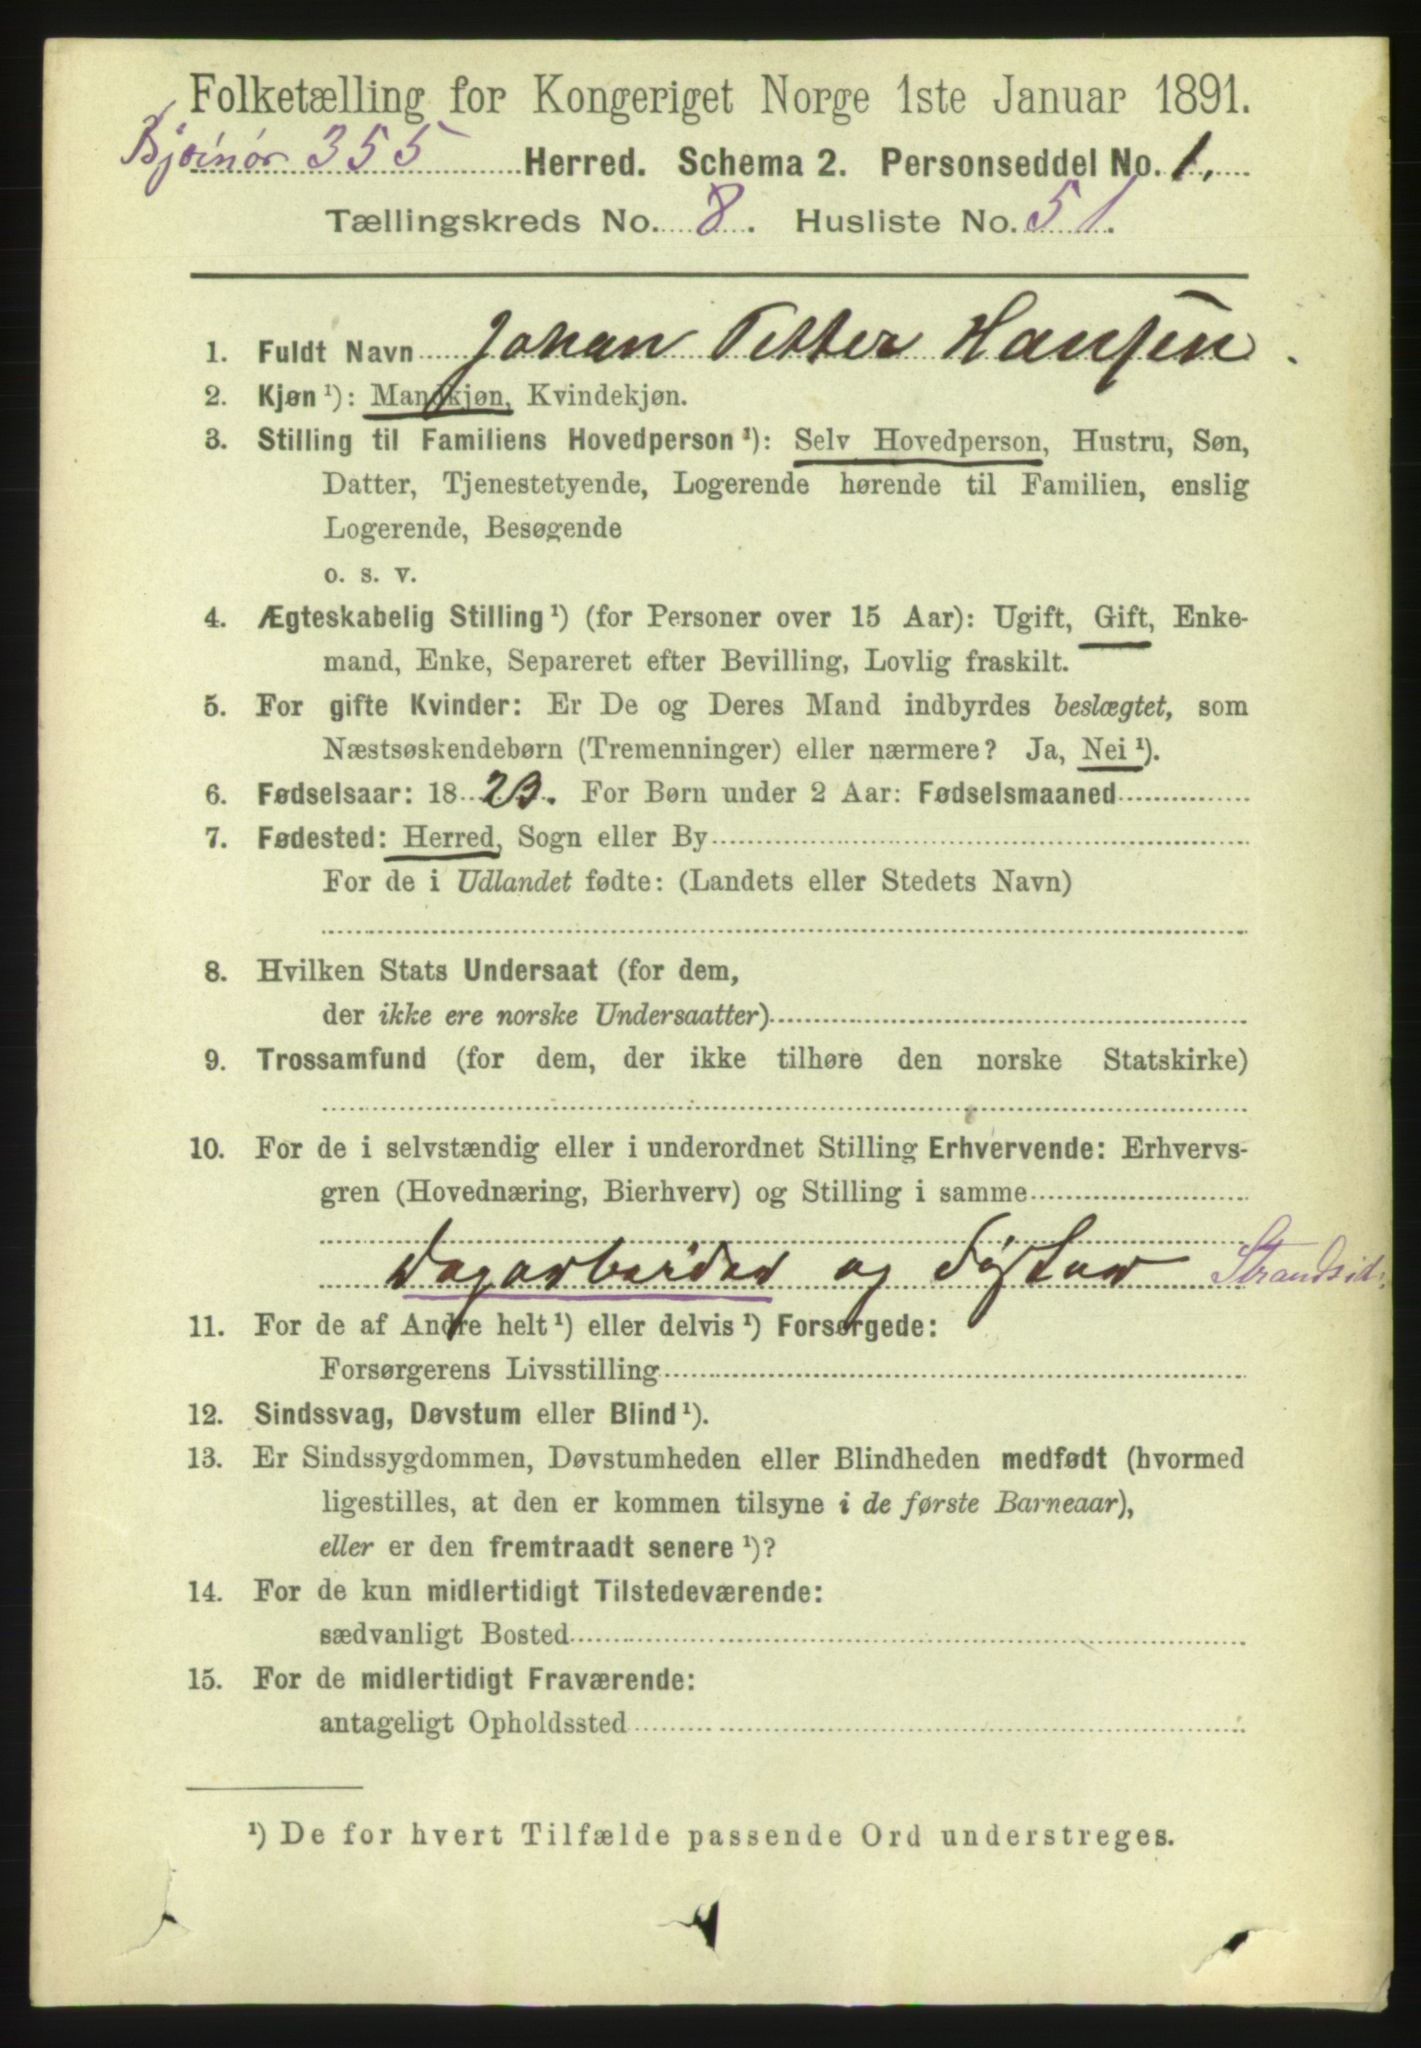 Folketælling for Kongeriget Norge 1ste Januar 1891.
Bjørnør 355 Herred. Schema 2. Personseddel No. 1.
Tællingskreds No. 8. Husliste No. 51.
1. Fuldt Navn Johan Petter Hansen.
2. Kjøn ¹): Mandkjøn, Kvindekjøn.
3. Stilling til Familiens Hovedperson ¹): Selv Hovedperson, Hustru, Søn,
Datter, Tjenestetyende, Logerende hørende til Familien, enslig
Logerende, Besøgende
o. s. v.
4. Ægteskabelig Stilling ¹) (for Personer over 15 Aar): Ugift, Gift, Enke-
mand, Enke, Separeret efter Bevilling, Lovlig fraskilt.
5. For gifte Kvinder: Er De og Deres Mand indbyrdes beslægtet, som
Næstsøskendebørn (Tremenninger) eller nærmere? Ja, Nei ¹).
6. Fødselsaar: 1823. For Børn under 2 Aar: Fødselsmaaned
7. Fødested: Herred, Sogn eller By
For de i Udlandet fødte: (Landets eller Stedets Navn)
8. Hvilken Stats Undersaat (for dem,
der ikke ere norske Undersaatter)
9. Trossamfund (for dem, der ikke tilhøre den norske Statskirke)
10. For de i selvstændig eller i underordnet Stilling Erhvervende: Erhvervs-
gren (Hovednæring, Bierhverv) og Stilling i samme
Dagarbeider og Fisker Strandsid.
11. For de af Andre helt ¹) eller delvis ¹) Forsørgede:
Forsørgerens Livsstilling
12. Sindssvag, Døvstum eller Blind ¹).
13. Er Sindssygdommen, Døvstumheden eller Blindheden medfødt (hvormed
ligestilles, at den er kommen tilsyne i de første Barneaar),
eller er den fremtraadt senere ¹)?
14. For de kun midlertidigt Tilstedeværende:
sædvanligt Bosted
15. For de midlertidigt Fraværende:
antageligt Opholdssted
¹) De for hvert Tilfælde passende Ord understreges.